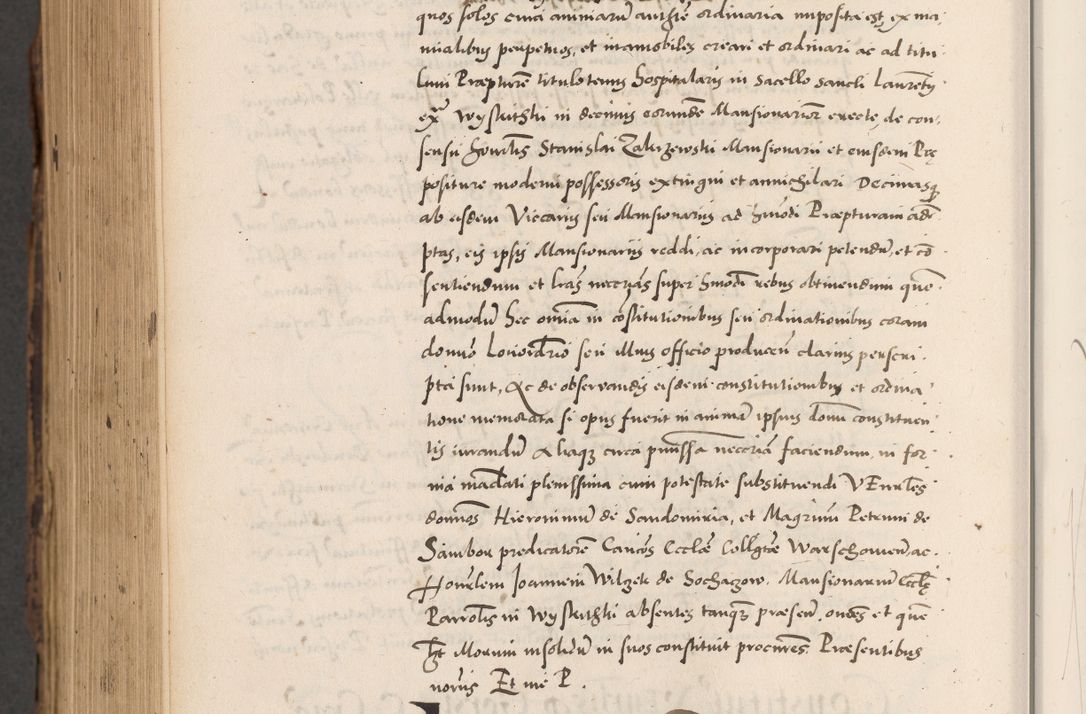 quos solos cura animarũ aucthẽ ordinaria imposita est, ex ma,
nualibus perpetuos, et inamobiles creari et ordinari ac ad titu
lum Præpturæ titulotenus hospitalaris in sacello sancti Laurentÿ
exª Wyskithki in decimis eorundẽ Mansionariorr̃ erecte, de con,
sensu honrlis Stanislai Zakrzewski Mansionarii et eiusdem Præ
positure moderni possessoris extingui et annichilari Decimasq₃
ab eisdem Viccariis seu Mansionariis ad hmõdi Præpturam adẽ
ptas, eis ipsis Mansionariis reddi, ac incorporari petendũ, et cõ
sentiendum et lr̃as neccrias super hmõdi rebus obtinendum quẽ
admodũ hec omĩa in cõstitutionibus seu ordinationibus coram
domĩo Locioordrio seu illius officio producen̄ clarius perscri,
pta sunt, Ac de observandis eisdem constitutionibus et ordina
tione memorata si opus fuerit in animã ipsius domĩ constituen
tis iurandũ Aliaq₃ circa pmissa neccria faciendum, in for
ma mandati plenissima cum potestate substituendi VEnrles
domĩos Hieronimũ de Sandomiria, et Magrum Petrum de
Sambor predicatorẽ Canõs Ecclæ Collgtæ Warschowien̄ ac
Honrlem Joannem Wilgek de Sochaczow. Mansionarium Eccliæ
Parrolis in Wyskithki absentes tanq₃ præsen̄, omes et quẽ
lt Morum insolidũ in suos constituit procures Præsentibus
norus Et me P.